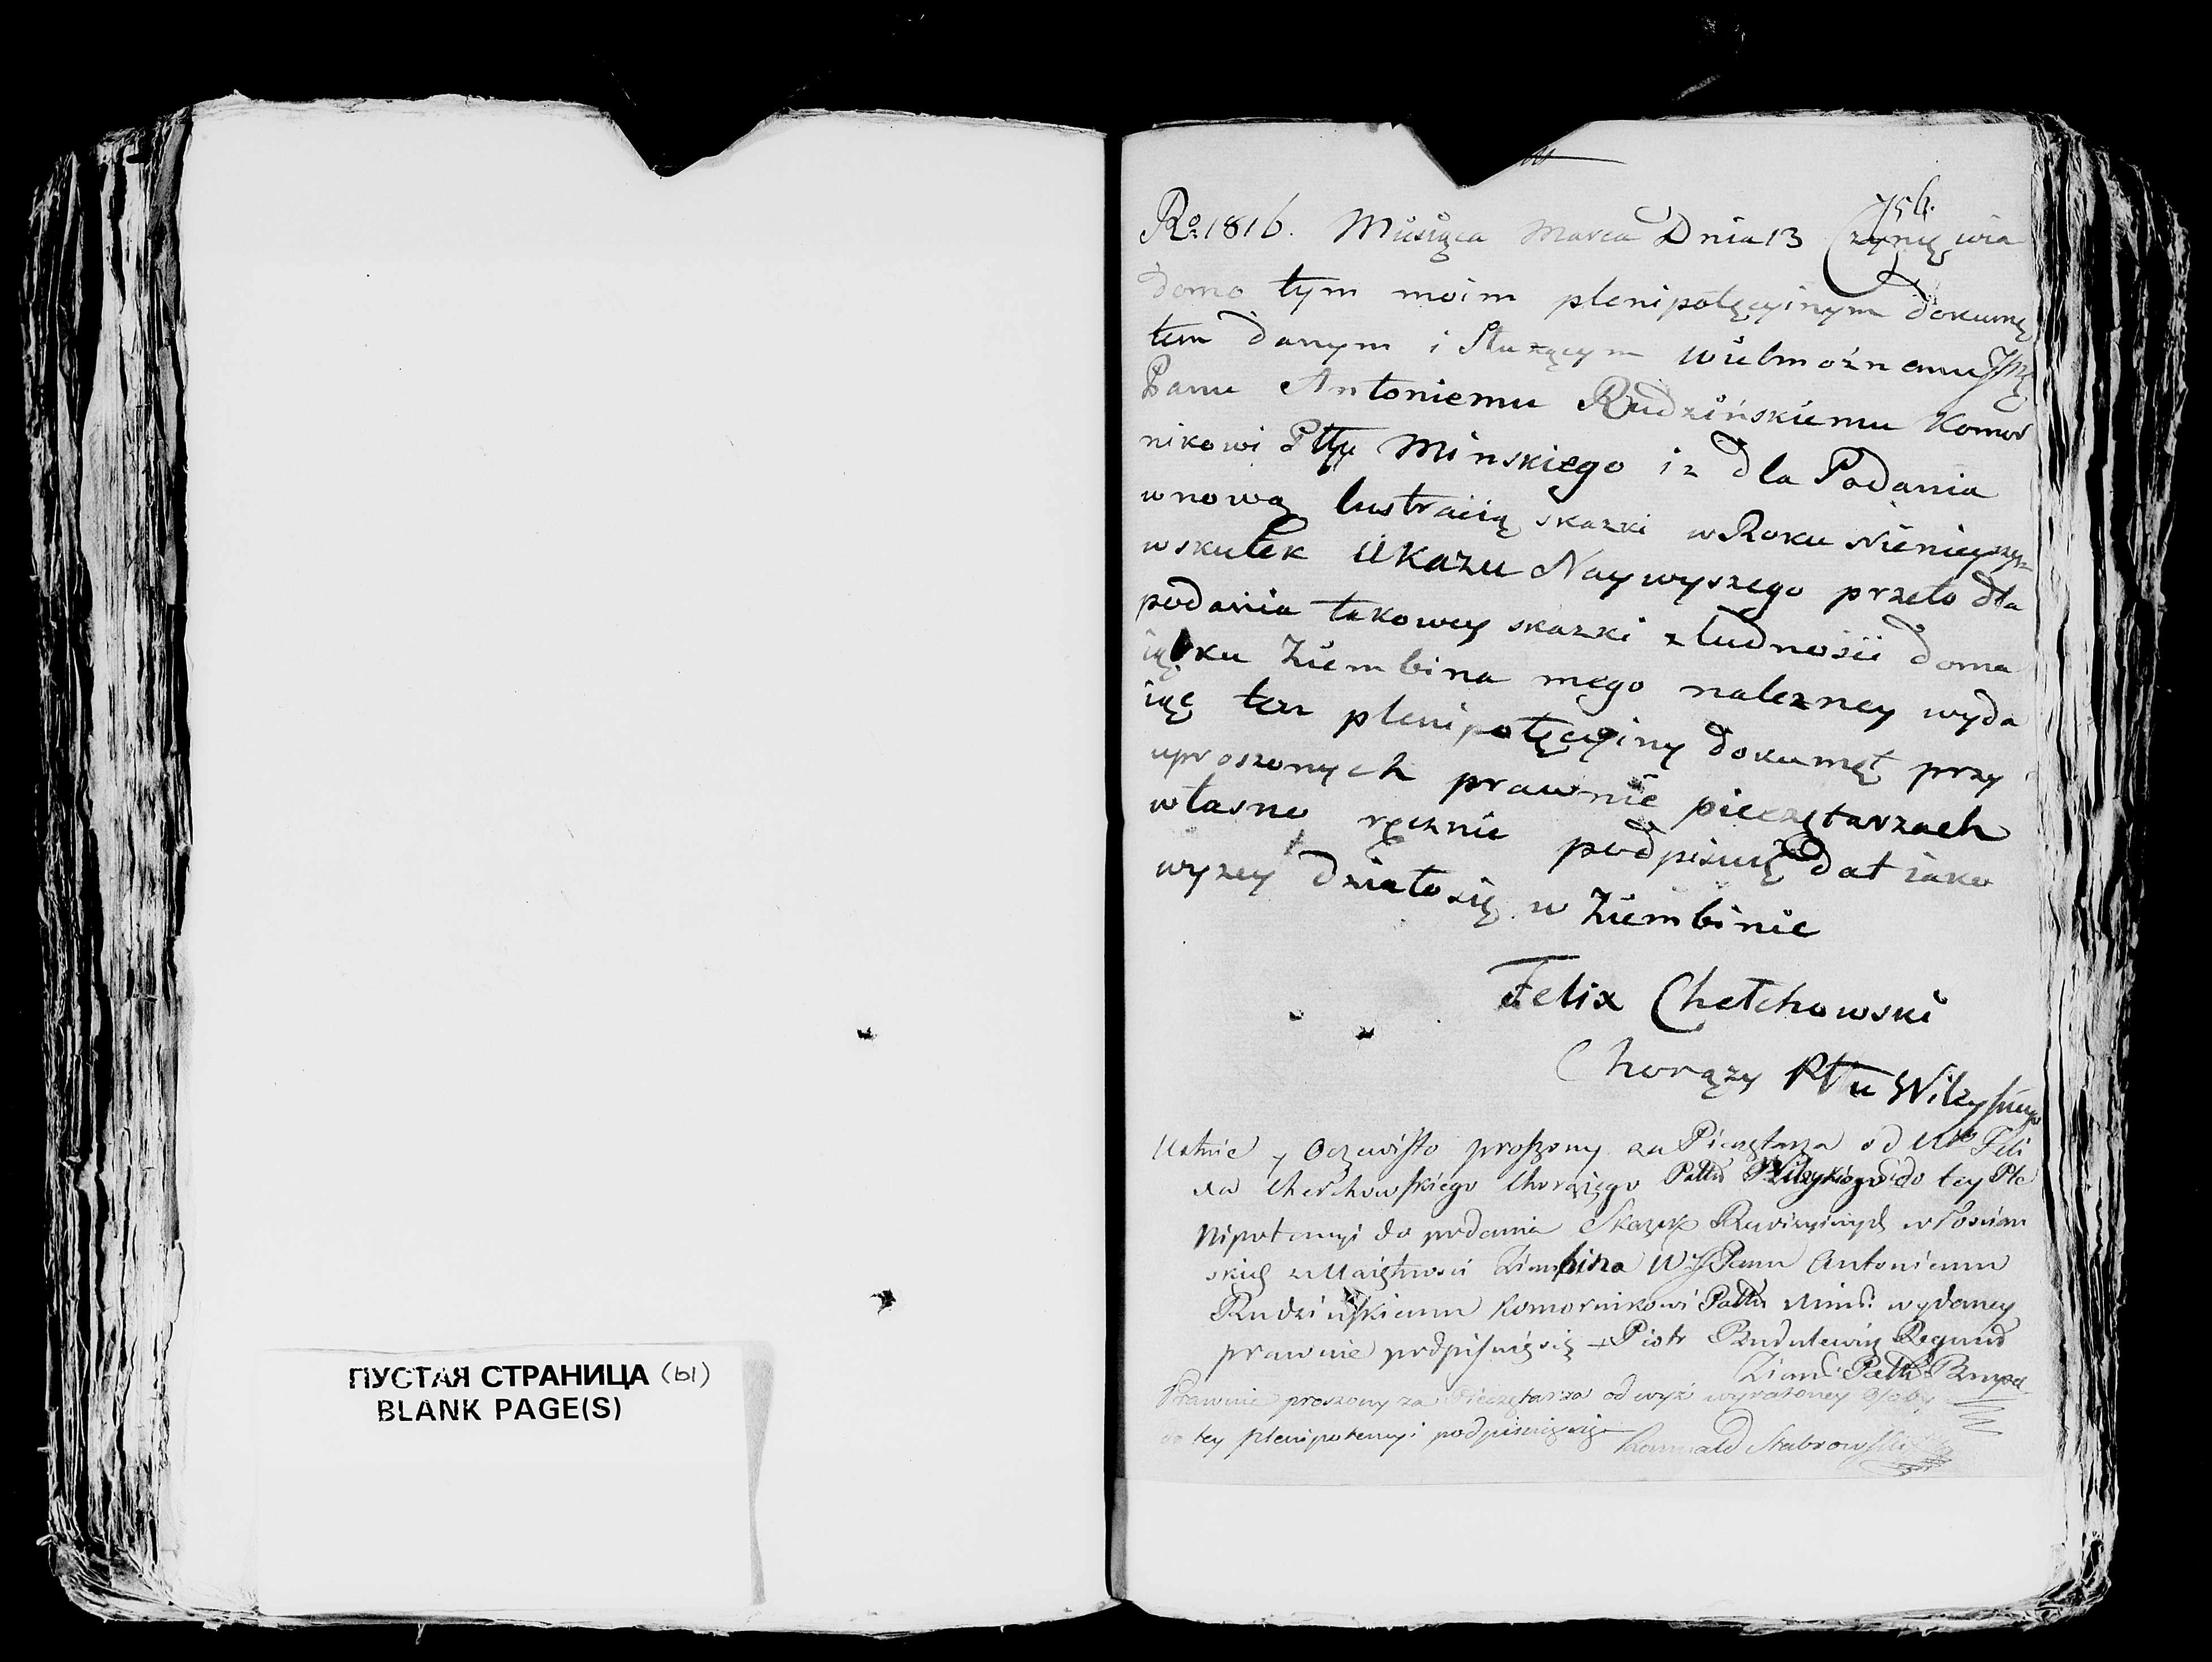 ПУСТАЯ СТРАНИЦА (ы)
BLANK PAGE(S)
756.
Ro 1816. Miesiąca Marca Dnia 13 Czynię wia
domo tym moim plenipotęcyinym dokumę
tem danym i Słuzącym Wielmożnemu
Panu Antoniemu Rudzińskiemu Komor
nikowi Pttu Minskiego iz dla Podania
wnową lustracią skazki w Roku Nienieyszym
wskutek Ukazu Naywyszego przeto dla
podania takowey skazki zludnosii doma
iątku Ziembina mego nalezney wyda
iąc ten plenipotęcyiny dokumęt przy
uproszonych prawnie pieczętarzach
własno ręcznie podpisuię dat iako
wyzey działosię w Ziembinie
Felix Chełchowski
Chorązy Pttu Wileyskiego
Ustnie y Oczewisto proszony za Pieczętarza od Feli
xa Chełchowskiego Chorążego Pattu Wileyskiego do tey Ple
nipotencyi do podania Skazek Rewizyinych włoscian
skich z Maiętnosci Ziembina W J Panu Antoniemu
Rudzińskiemu Komornikowi Pattu Mins: wydaney
prawnie podpisuię się Piotr
Prawnie proszony za Pieczętarza od wyż wyrażoney osoby
do tey plenipotencyi podpisuię się Romuald Stabrowski